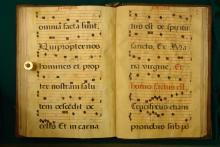 omnia facta sunt.
Qui propter nos
homines et prop
tre nostram salu
tem descēdit de
celis Et in carna
est de spiritu
sancto, Ex Ma
ria virgine, Et
homo factus est.
Crucifixus etiam
pronobis sub po